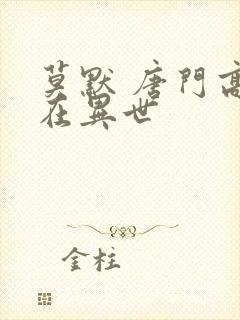 莫默 唐門高
在異世
金柱